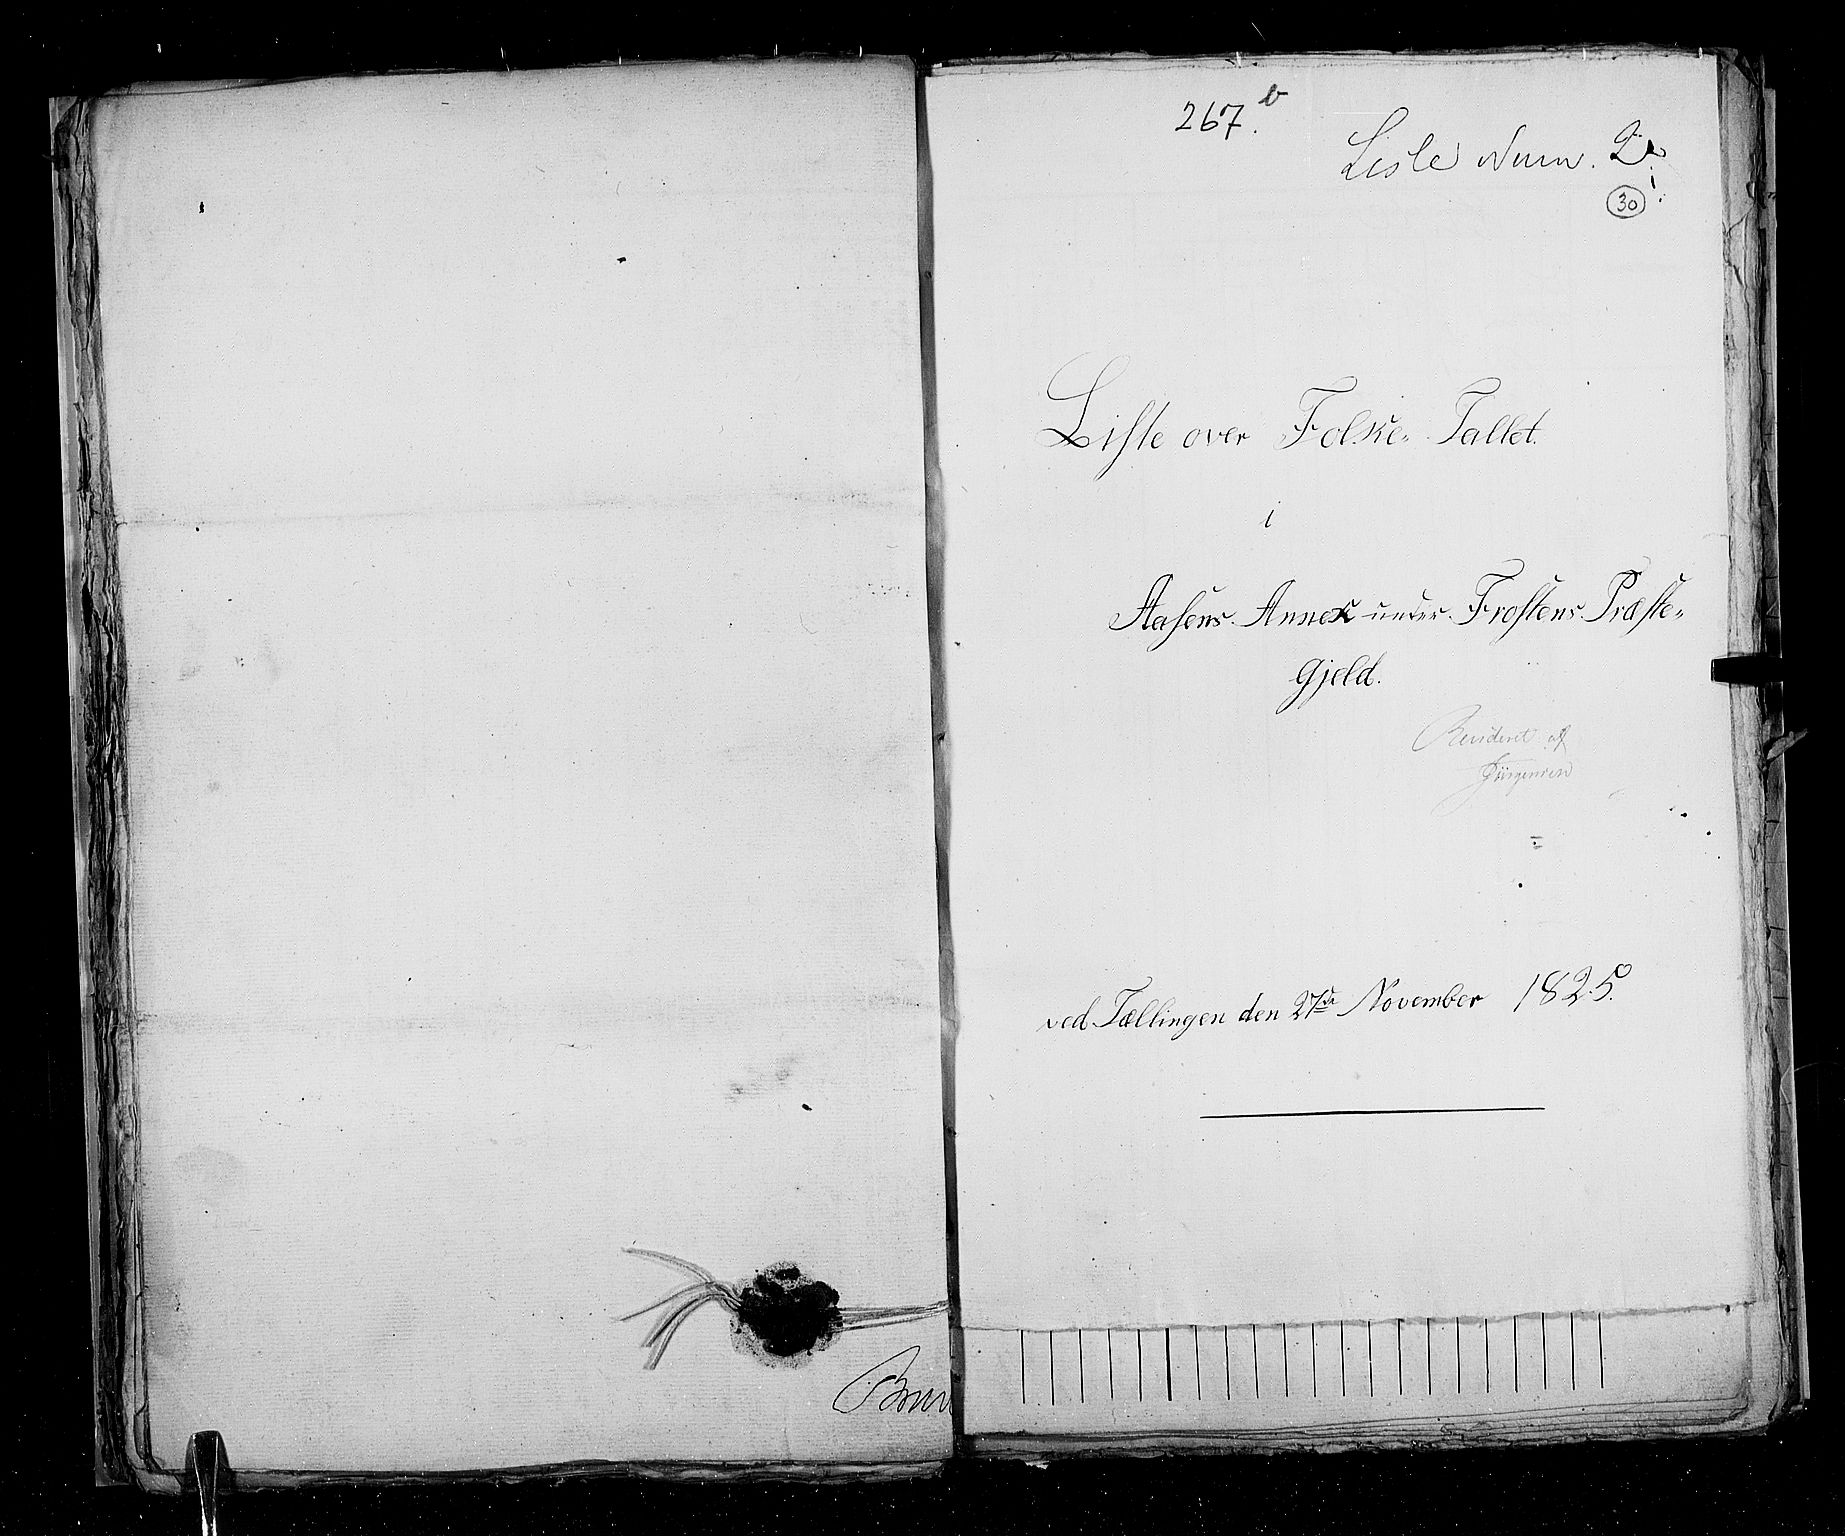 267.b
Liste Num. 2
30
Liste over Folke-Tallet.
i
Aasens Annex under Frostens Præste-
Gjeld.
Revideret af
Jürgensen
ved Tællingen den 27de November 1825.